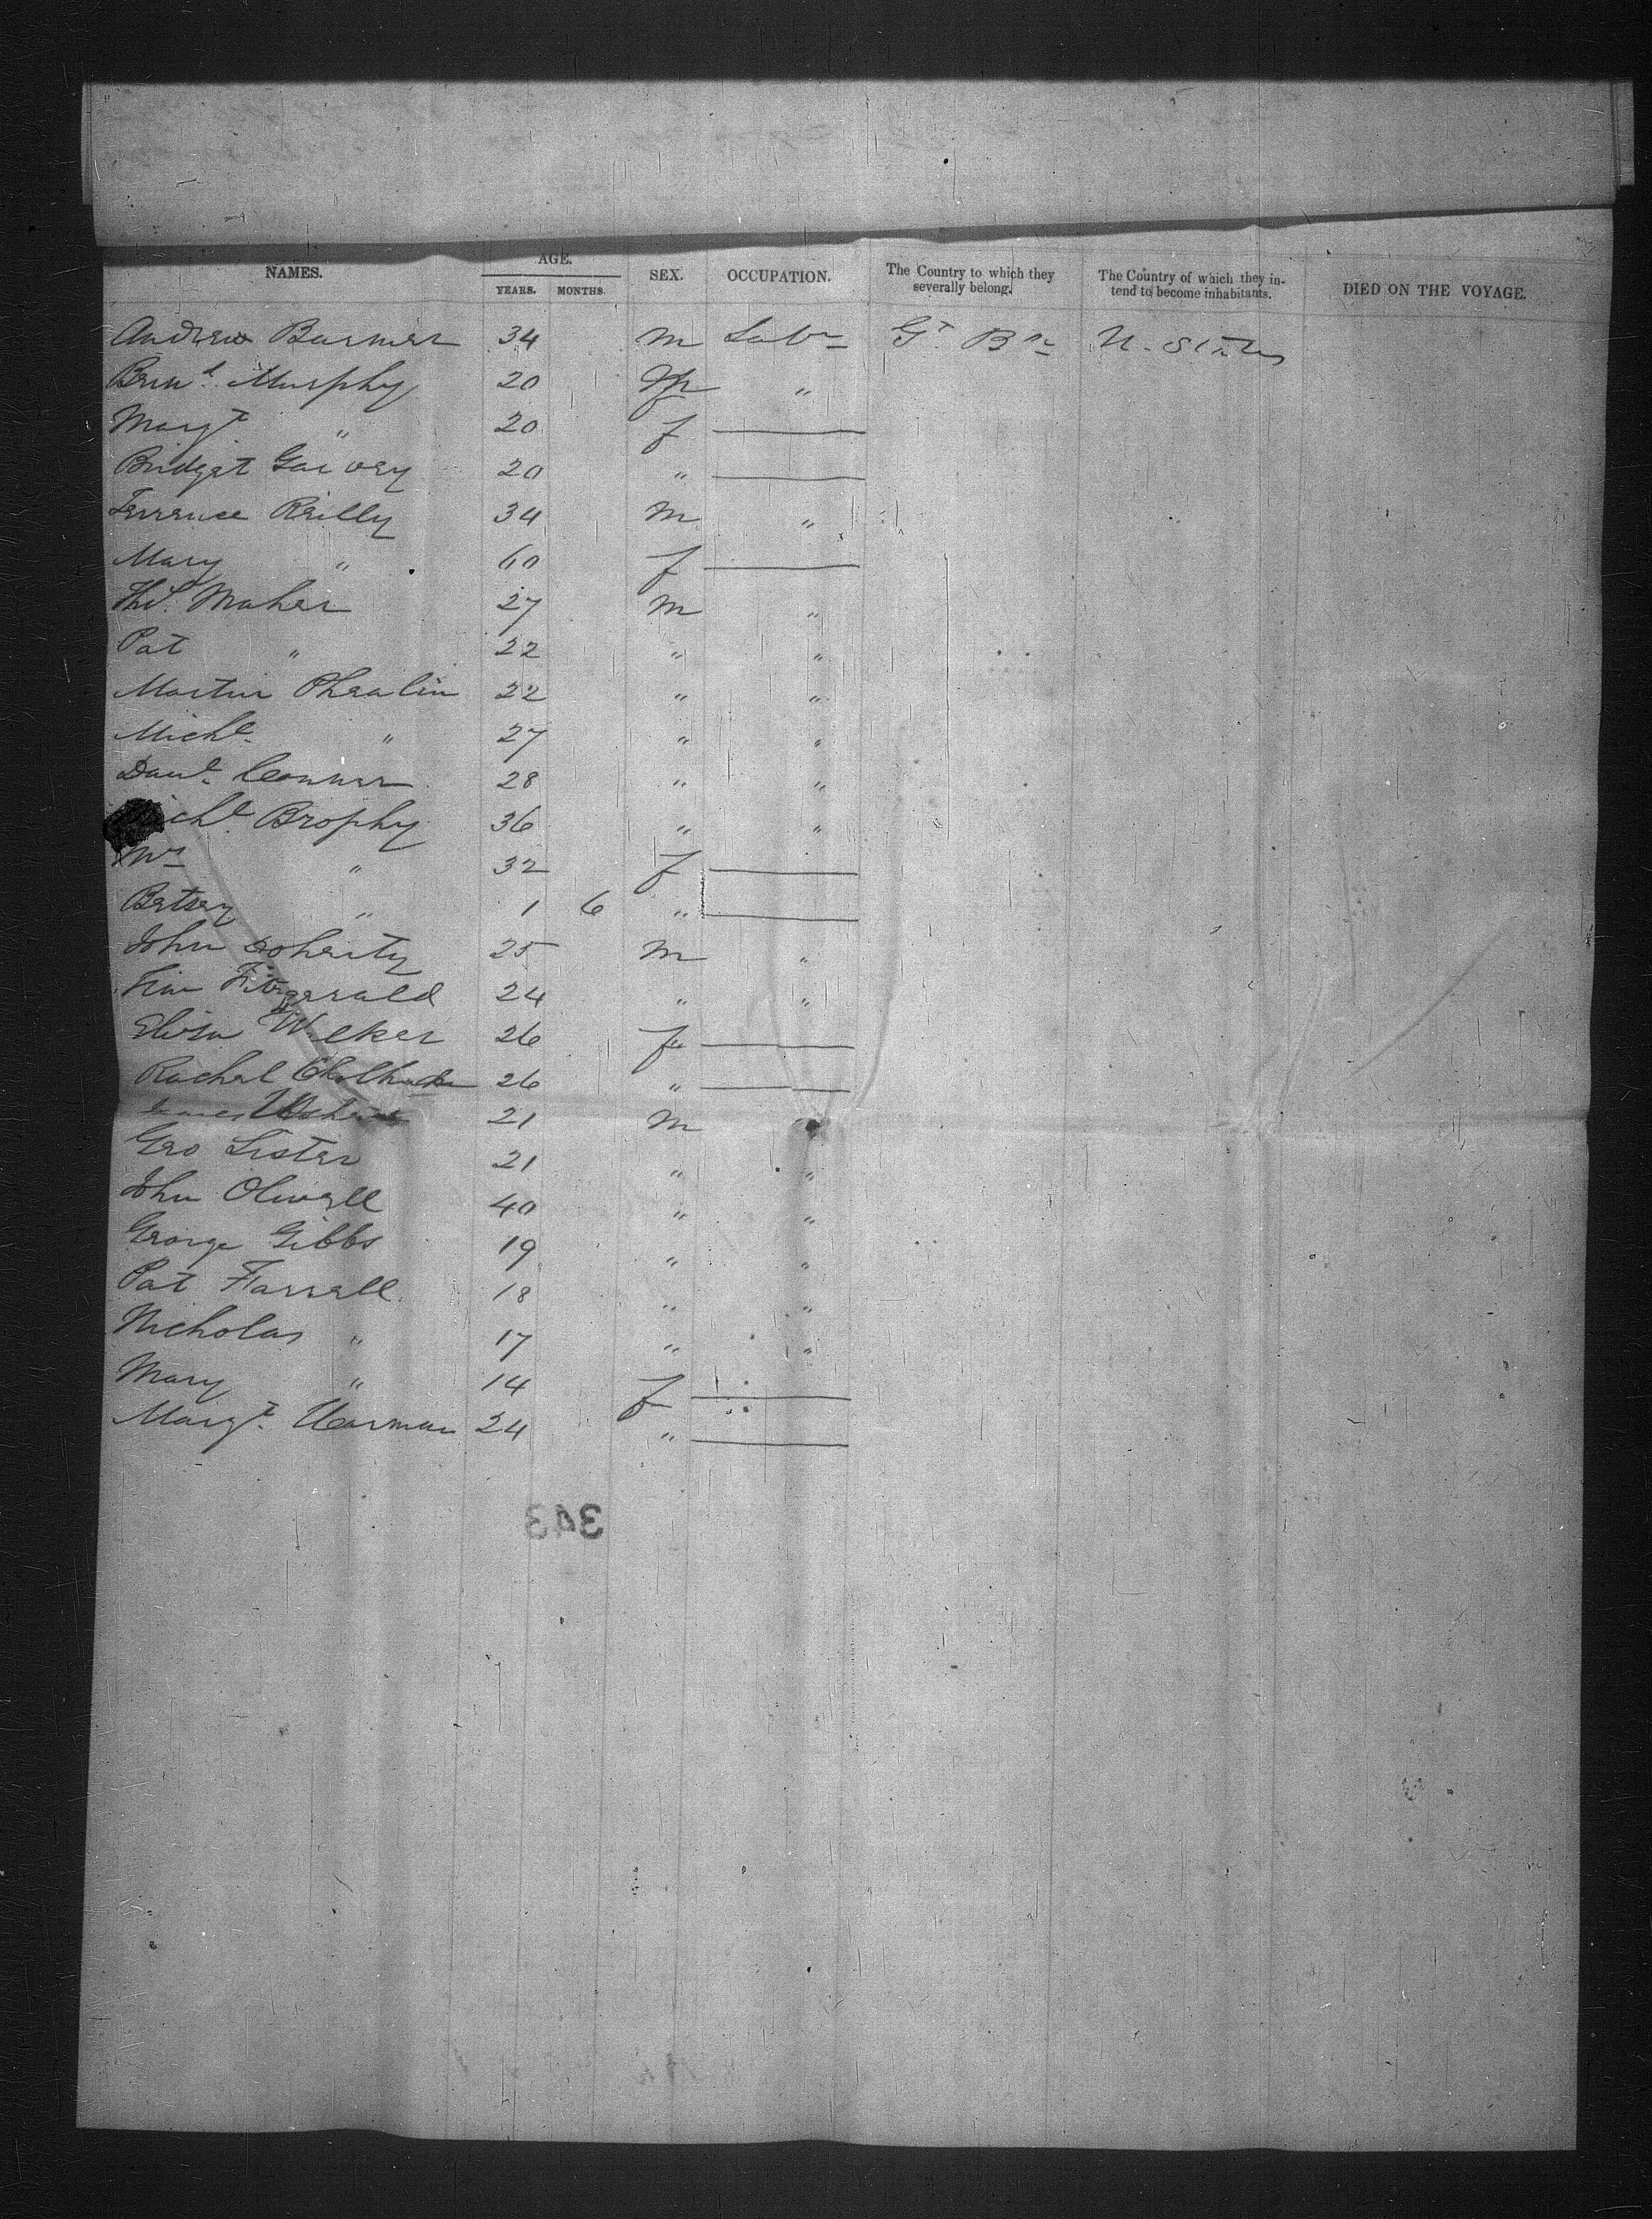 NAMES. AGE. SEX. OCCUPATION. The Country to which they severally belong. The Country of which they intend to become inhabitants. DIED ON THE VOYAGE.
YEARS. MONTHS.
Andrew 34 m Labr Gt Bn U. States
Murphy 20 "
Margt " 20 f
Bridget Garvey 20 "
Terrence Reilly 34 m "
Mary " 60 f
Maher 27 m "
Pat " 22 " "
Martin Phealin 22 " "
Michl " 27 " "
Danl Connor 28 " "
Michl Brophy 36 " "
Mrs " 32 f
Betsey " 1 6 "
John Doherty 25 m "
Tim Fitzgerald 24 " "
Eliza 26 f
Rachel 26 "
21 m
Geo Lister 21 " "
John Olwell 40 " "
George Gibbs 19 " "
Pat Farrell 18 " "
Nicholas " 17 " "
Mary " 14 f
Margt. 24 "
343